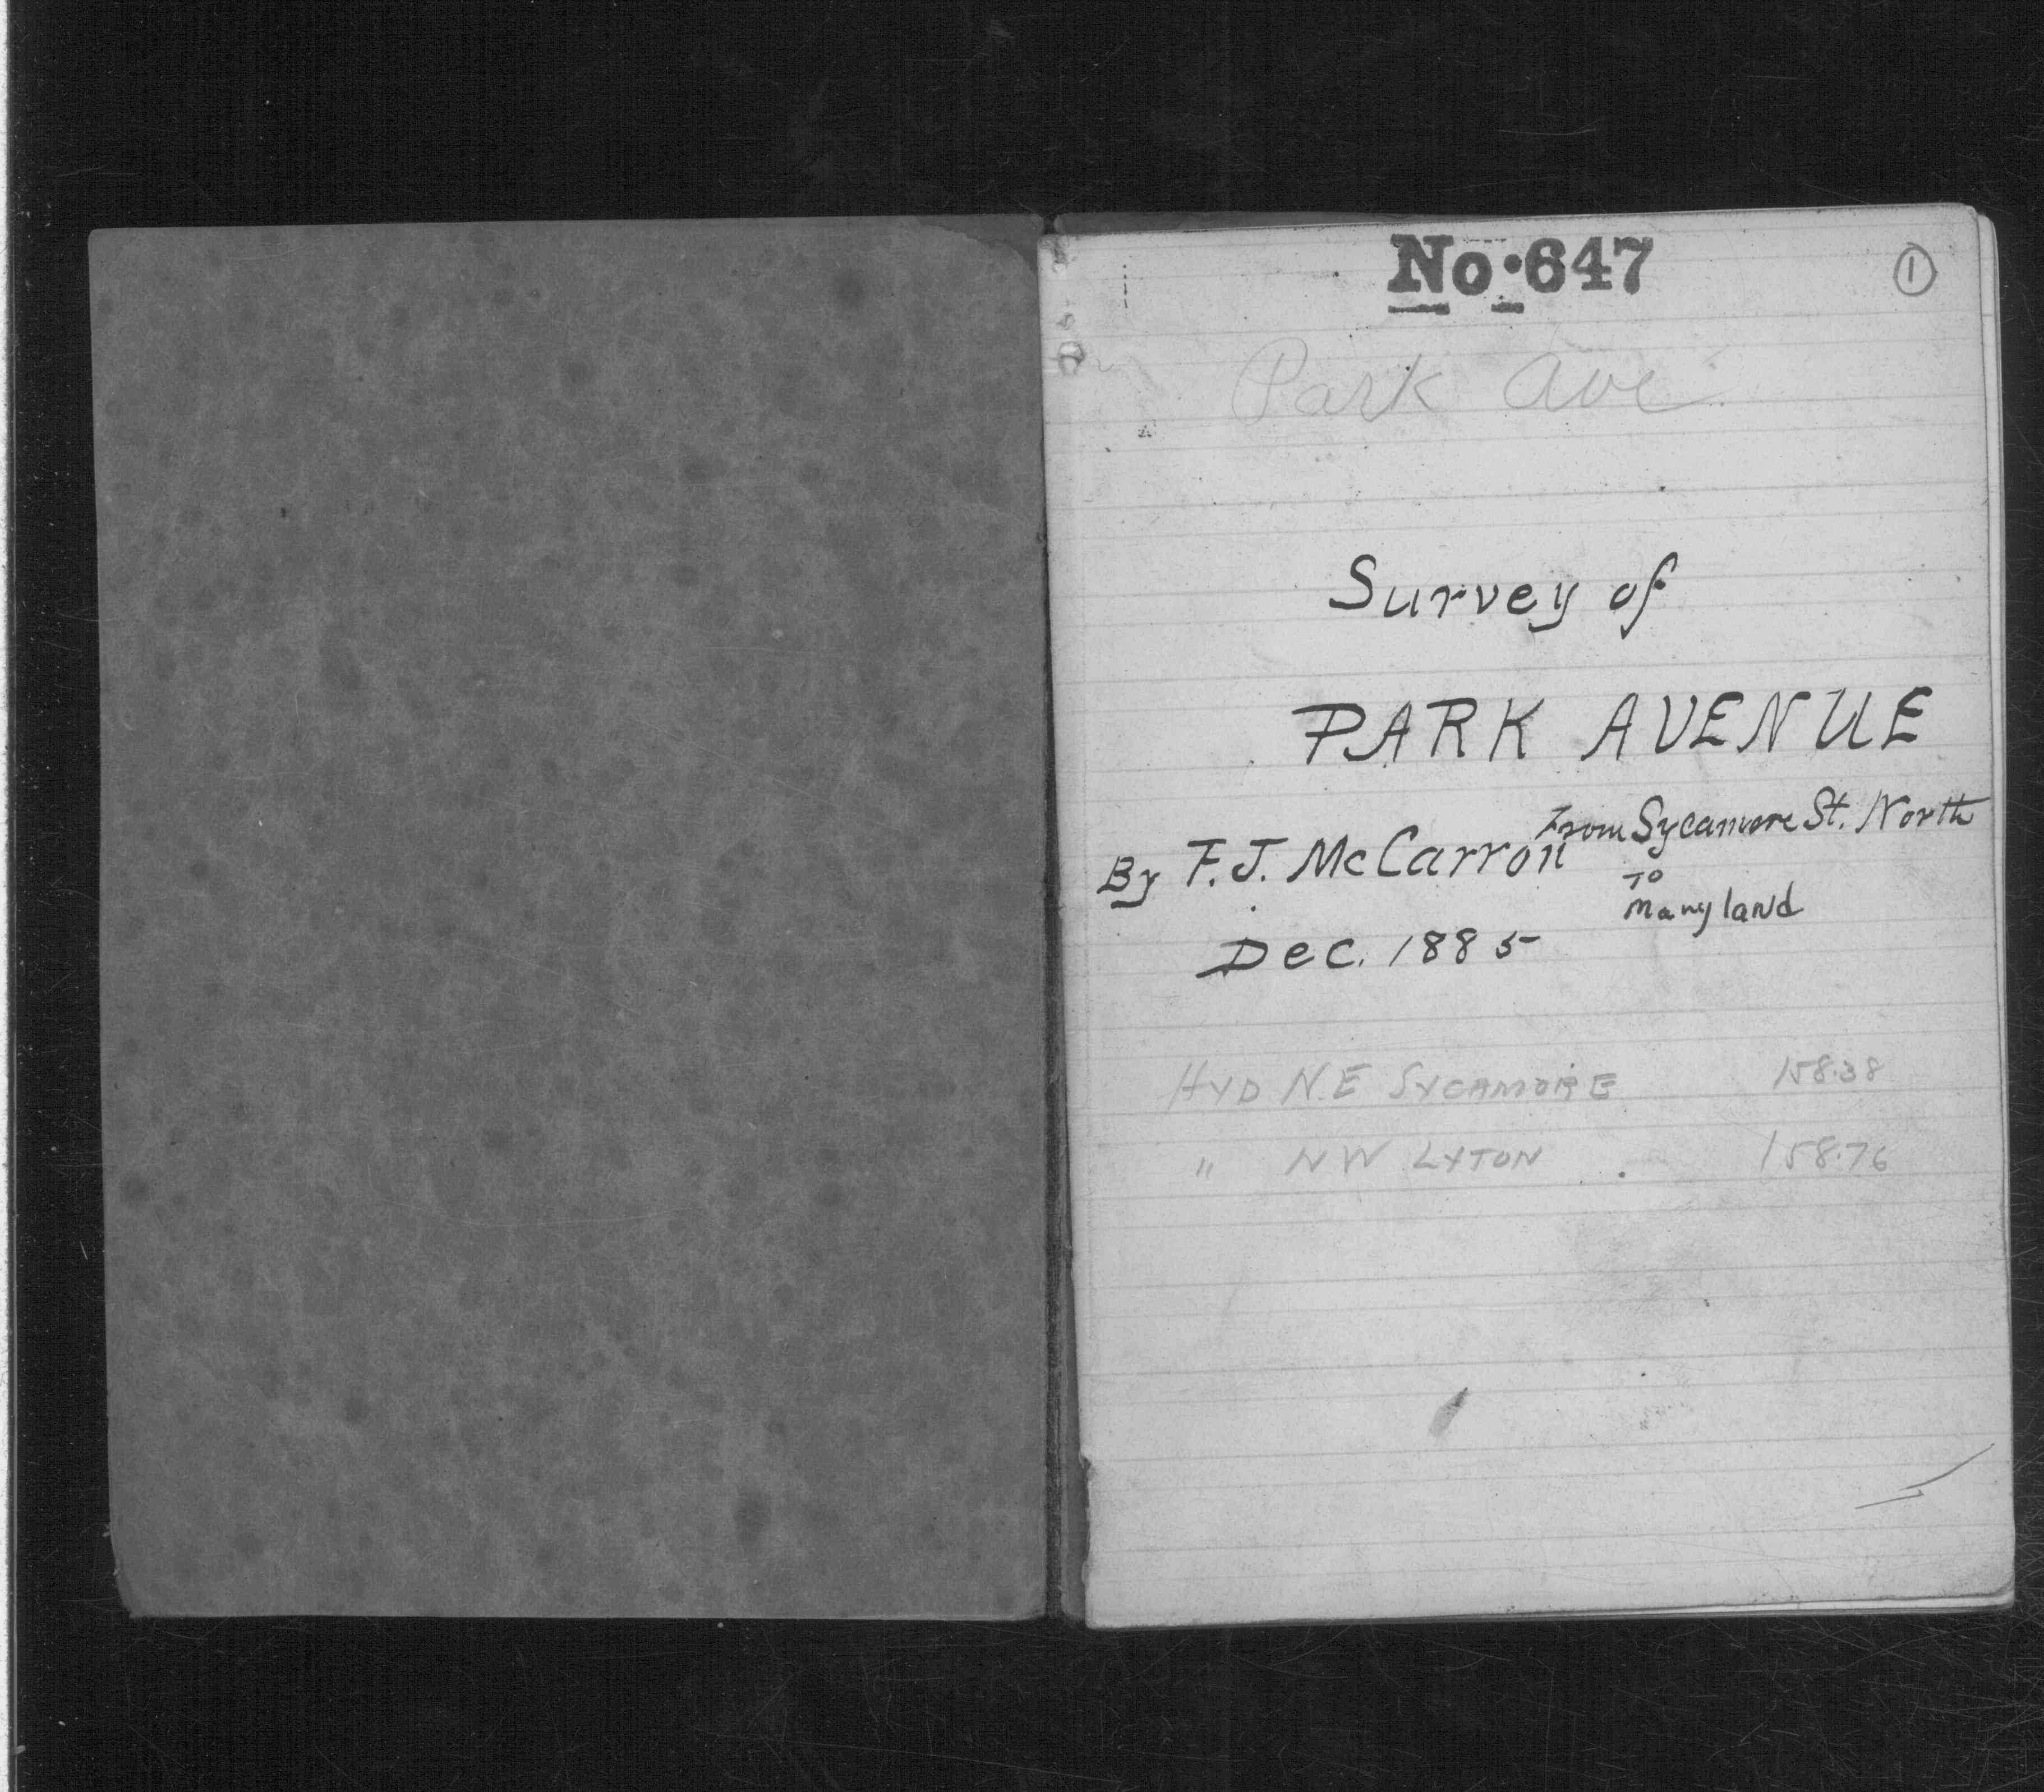 No. 647
1
Park Ave.
Survey of
PARK AVENUE
From Sycamore St. North
By F.J. McCarron
To
Maryland
Dec. 1885
HYD N.E SYCAMORE 158.38
" NW LYTON 158.76